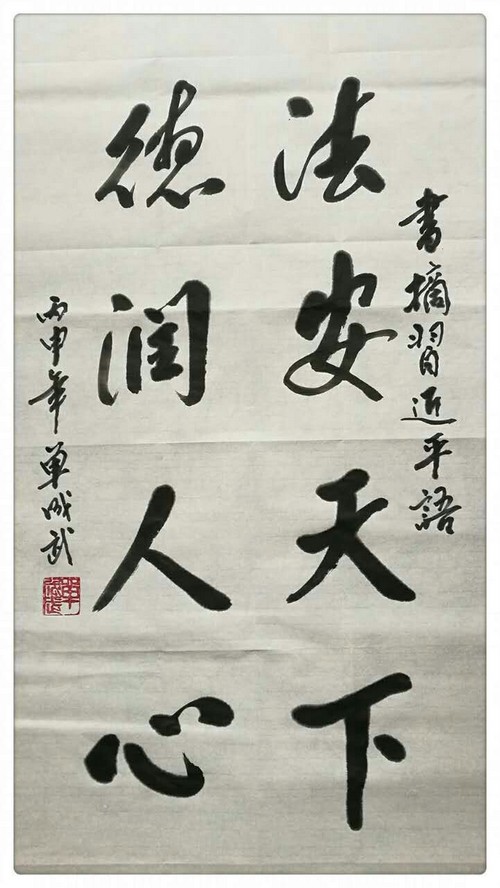 书摘習近平語
法安天下
德润人心
丙申年单成武